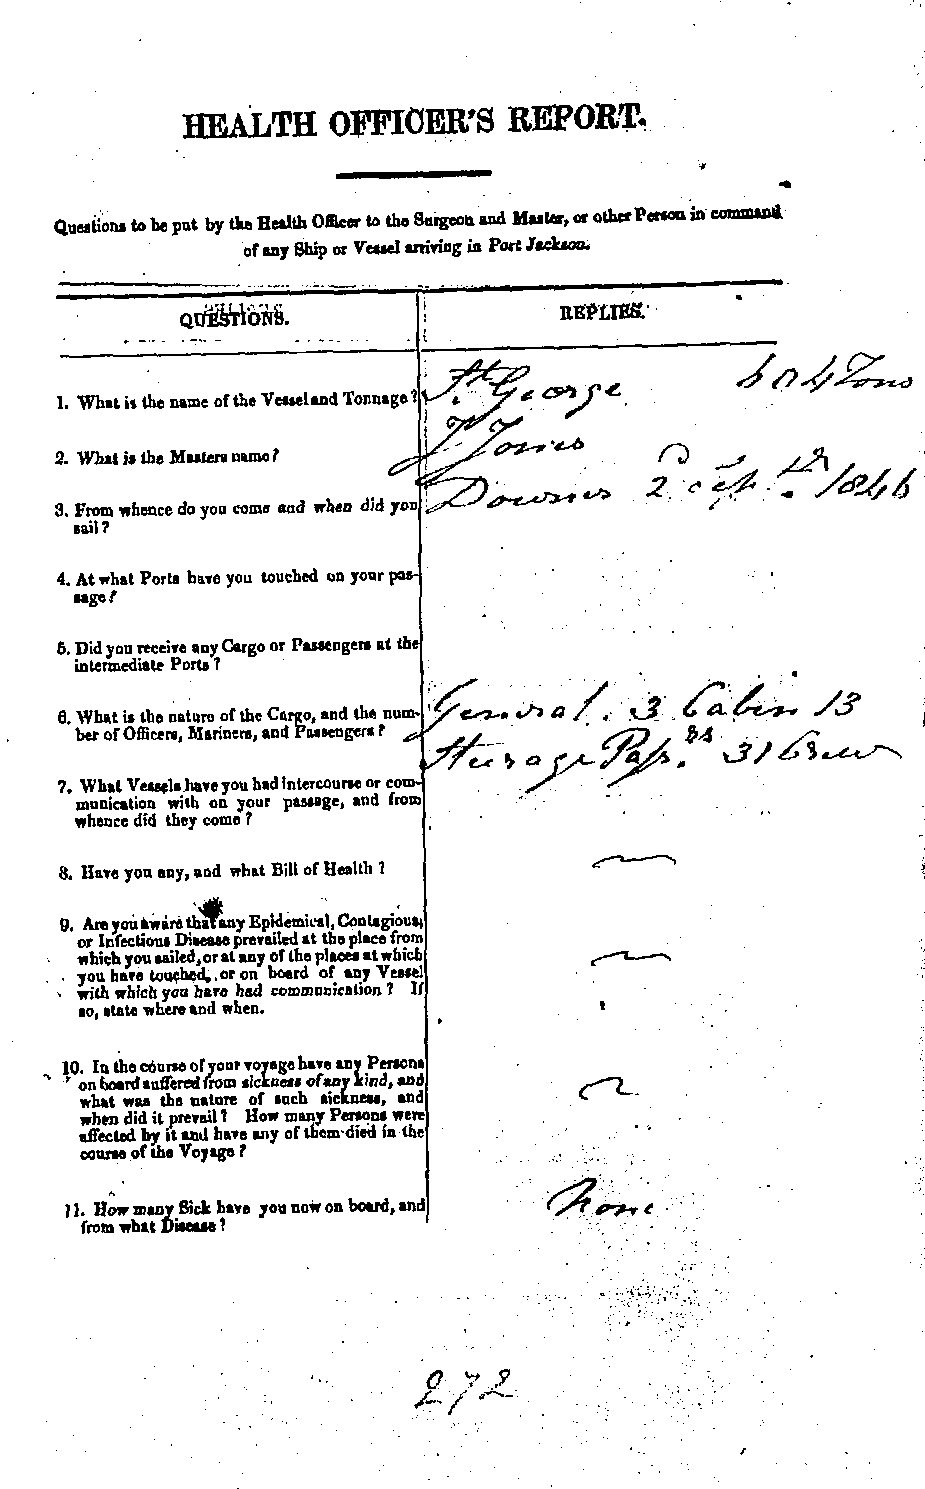 HEALTH OFFICER'S REPORT.
Questions to be put by the Health Officer to the Surgeon and Master, or other Person in command
of any Ship or Vessel arriving in Port Jackson.
QUESTIONS. REPLIES.
1. What is the name of the Vessel and Tonnage? St. George 604 Tons
2. What is the Masters name? J Jones
3. From whence do you come and when did you Downs 2 Sept. 1846
sail?
4. At what Ports have you touched on your pas-
sage?
5. Did you receive any Cargo or Passengers at the
intermediate Ports?
6. What is the nature of the Cargo, and the num- General. 3 Cabin 13
ber of Officers, Mariners, and Passengers? Steerage Pass.grs 31 Crew
7. What Vessels have you had intercourse or com-
munication with on your passage, and from
whence did they come?
8. Have you any, and what Bill of Health?
9. Are you aware that any Epidemical, Contagious,
or Infectious Disease prevailed at the place from
which you sailed, or at any of the places at which
you have touched, or on board of any Vessel
with which you have had communication? If
so, state where and when.
10. In the course of your voyage have any Persons
on board suffered from sickness of any kind, and
what was the nature of such sickness, and
when did it prevail? How many Persons were
affected by it and have any of them died in the
course of the Voyage?
11. How many Sick have you now on board, and None
from what Disease?
272